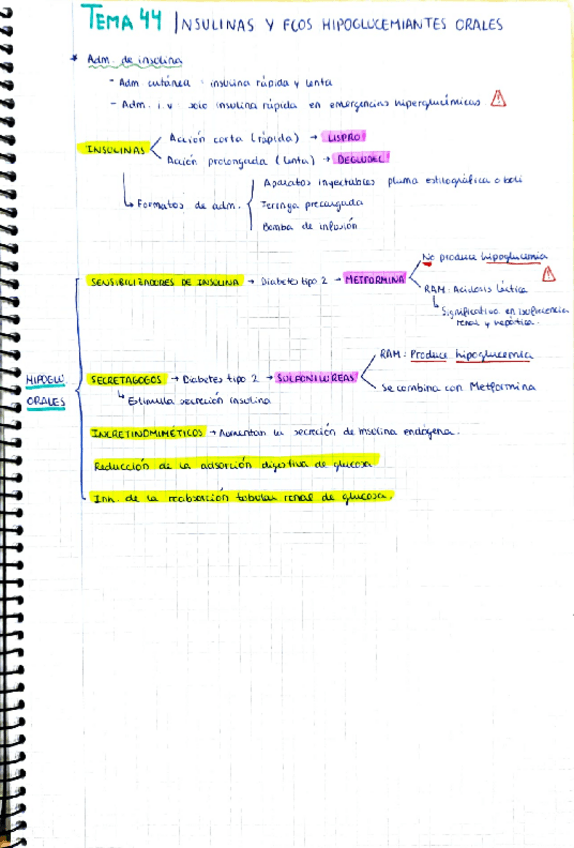 TEMA 44 | INSULINAS Y FCOS HIPOGLUCEMIANTES ORALES
* Adm. de insulina
- Adm cutánea : insulina rápida y lenta
- Adm. i.v : solo insulina rápida en emergencias hiperglucémicas
INSULINAS
Acción corta (rápida) → LISPRO!
Acción prolongada (lenta) → DEGLUDEC!
↳ Formatos de adm.
Aparatos inyectables pluma estilográfica o boli
Jeringa precargada
Bomba de infusión
HIPOGLU.
ORALES
SENSIBILIZADORES DE INSULINA → Diabetes tipo 2 → METFORMINA
No produce hipoglucemia
RAM: Acidosis láctica
↳ Significativa en insuficiencia
renal y hepática.
SECRETAGOGOS → Diabetes tipo 2 → SULFONILUREAS
↳ Estimula secreción insulina
RAM: Produce hipoglucemia
Se combina con Metformina
INCRETINOMIMÉTICOS → Aumentan la secreción de insulina endógena.
Reducción de la adsorción digestiva de glucosa
Inh. de la reabsorción tubular renal de glucosa.